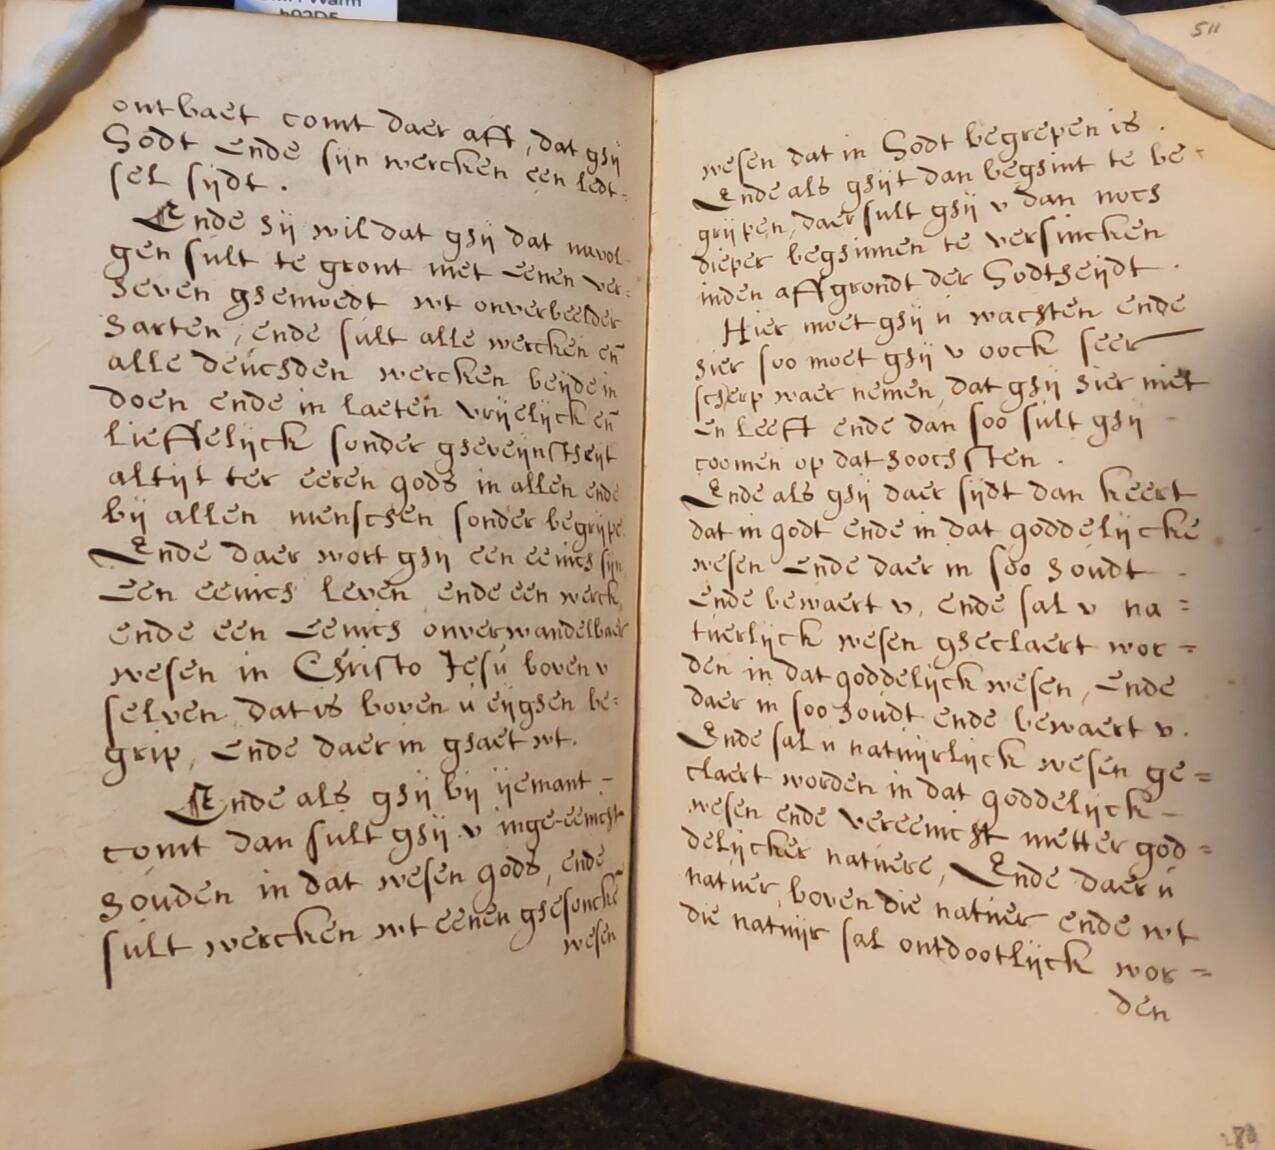 ontbaet comt daer aff, dat ghij
Godt ende sijn wercken een ledt-
sel sijdt.
Ende hij wil dat ghij dat navol-
gen sult te gront met eenen ver=
heven ghemoedt wt onverbeelder
harten, ende sult alle wercken en̄
alle deúchden wercken beijde in
doen ende in laeten vrijelijck en̄
lieffelijck sonder gheveijnstheijt
altijt ter eeren gods in allen ende
bij allen menschen sonder begrijpē
Ende daer wort ghij een eenich sijn
Een eenich leven ende een werck,
ende een Eenich onverwandelbaer
wesen in Christo Jesú boven v
selven, dat is boven ú eijghen be=
grip, Ende daer in ghaet wt.
Ende als ghij bij ijemant -
comt dan súlt ghij v inge-eenicht
houden in dat wesen gods, ende
sult wercken wt eenen ghesonckē
wesen
511
wesen dat in Godt begrepen is.
Ende als ghijt dan beghint te be-
grijpen, daer sult ghij v dan noch
dieper beghinnen te versincken
inden affgrondt der Godtheijdt.
Hier moet ghij ú wachten ende
hier soo moet ghij v oock seer
scherp waer nemen, dat ghij hier niet
en leeft ende dan soo súlt ghij -
coomen op dat hoochsten.
Ende als ghij daer sijdt dan keert
dat in godt ende in dat goddelijcke
wesen Ende daer in soo houdt -
Ende bewaert v, ende sal v na =
tuerlijck wesen gheclaert wor =
den in dat goddelijck wesen, Ende
daer in soo houdt ende bewaert v.
Ende sal ú natuijrlijck wesen ge =
claert worden in dat goddelijck -
wesen ende vereenicht metter god =
delijcker natuere, Ende daer ú
natuer, boven die natuer ende wt
die natuijr sal ontdootlijck wor =
den